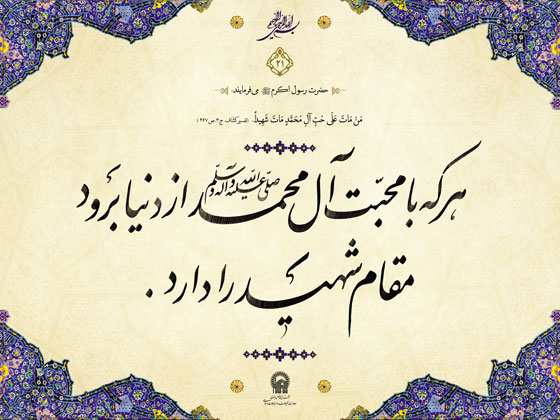 بسم الله الرحمن الرحیم
۲۱
حضرت رسول اکرم ﷺ می‌فرمایند:
مَن ماتَ عَلی حُبِّ آلِ مُحَمَّدٍ ماتَ شَهیداً. (تفسیر کشاف، ج۳، ص۴۶۷)
هرکه با محبّت آل محمد صلّی‌الله‌علیه‌وآله‌وسلّم از دنیا برود
مقام شهید را دارد.